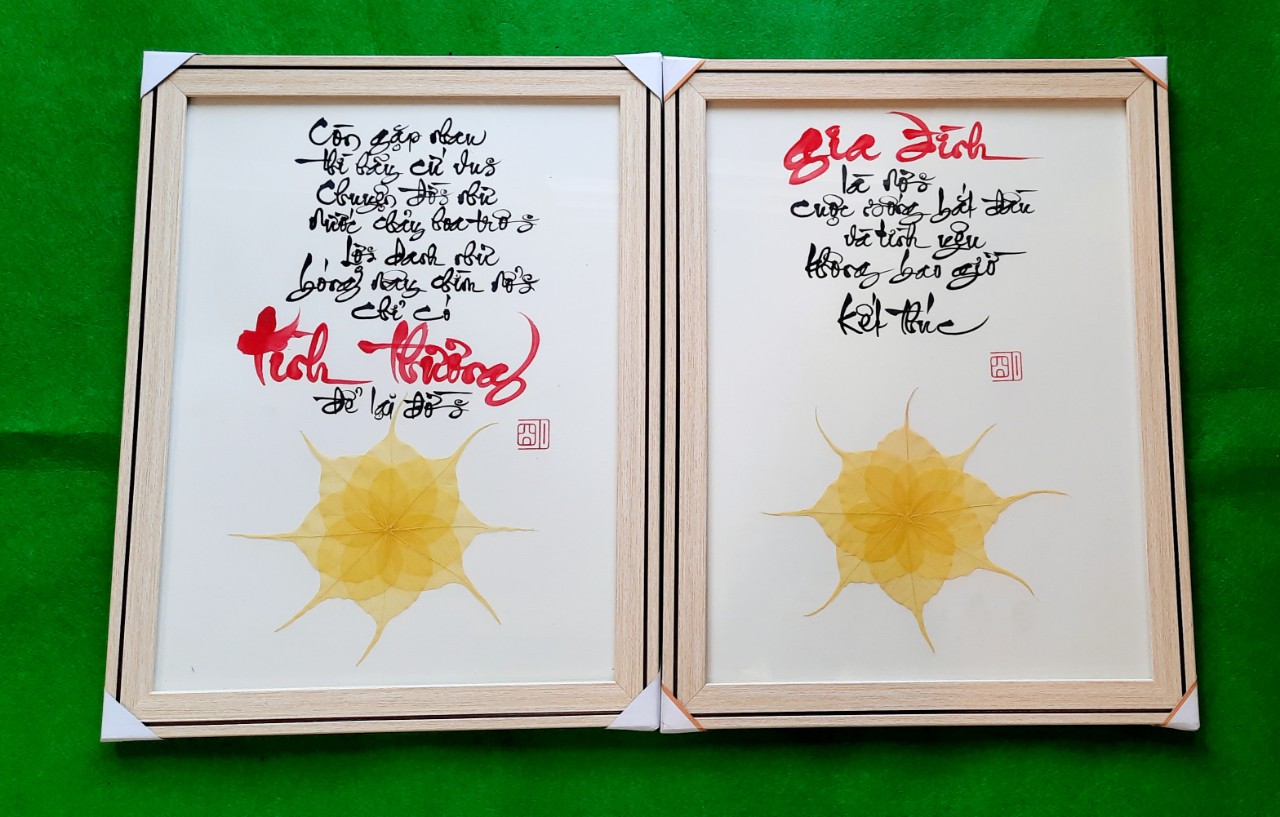 Còn gặp nhau
thì hãy cứ vui
Chuyện đời như
nước chảy hoa trôi
Lợi danh như
bóng mây chìm nổi
chỉ có
tình thương
để lại đời
gia đình
là nơi
cuộc sống bắt đầu
và tình yêu
không bao giờ
kết thúc